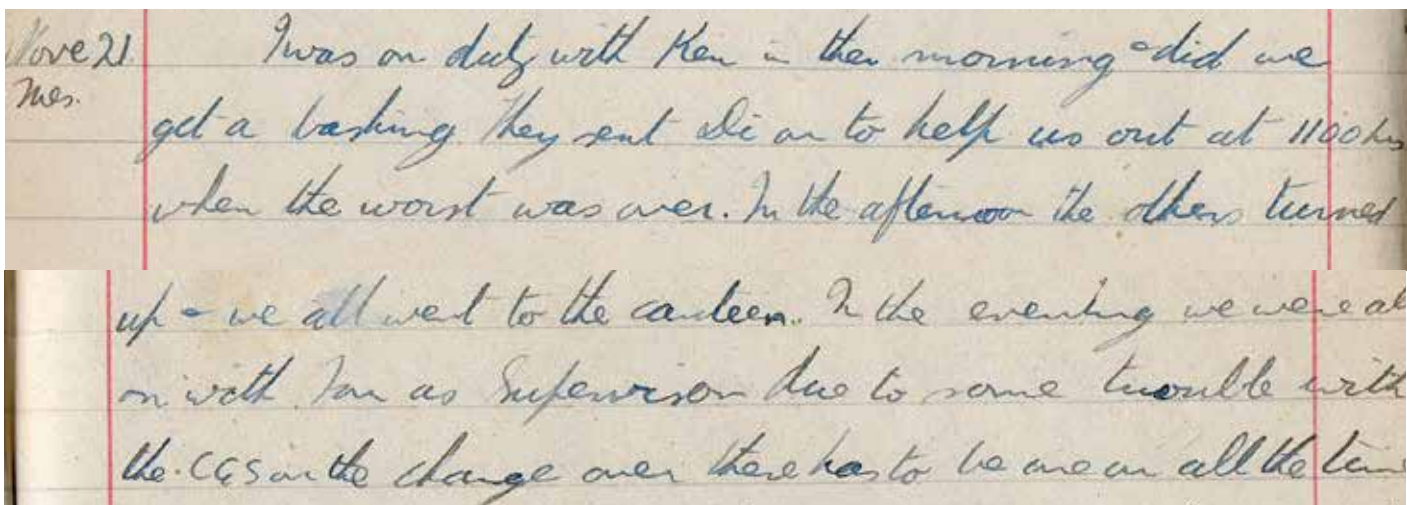 Nove 21. I was on duty with Ken in the morning - did we
Tues. get a bashing. They sent Di on to help us out at 1100 hrs
when the worst was over. In the afternoon the others turned
up - we all went to the canteen. In the evening we were al
on with as Supervisor due to some trouble with
the C&S on the change over there has to be one on all the time